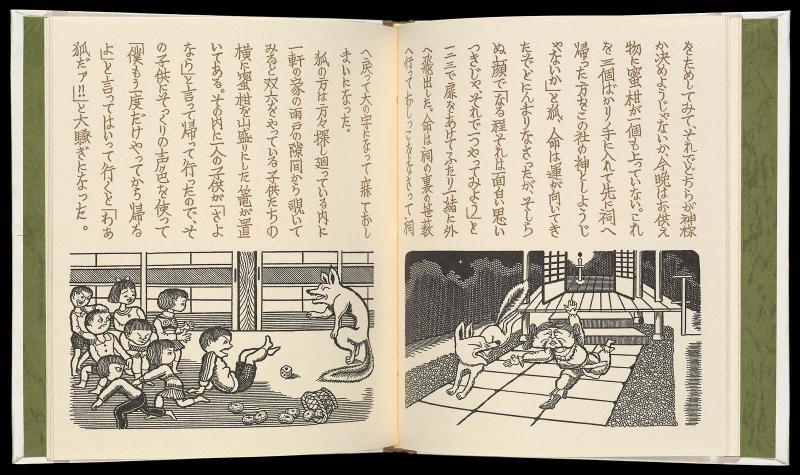 をためしてみて、それでどちらが神様
か決めようじゃないか、今晩はお供え
物に蜜柑が一個も上っていない、これ
を三個ばかり手に入れて先に祠へ
帰った方をこの社の神としようじ
ゃないか」と狐、命は運が向いてき
たぞとにんまりなさったが、そしら
ぬ顔で「なる程それは面白い思い
つきじゃ、それで一つやってみよう」と
一二三で扉をあけてふたり一緒に外
へ飛出した。命は祠の裏の笹薮
へ行っておしっこをなさって祠
へ戻って大の字になって寐ておし
まいになった。
狐の方は方々探し廻っている内に
一軒の家の雨戸の隙間から覗いて
みると双六をやっている子供たちの
横に蜜柑を山盛りにした篭が置
いてある。その内に一人の子供が「さよ
なら」と言って帰って行ったので、そ
の子供にそっくりの声色を使って
「僕もう一度だけやってから帰る
よ」と言ってはいって行くと「わあ
狐だァ!!」と大騒ぎになった。